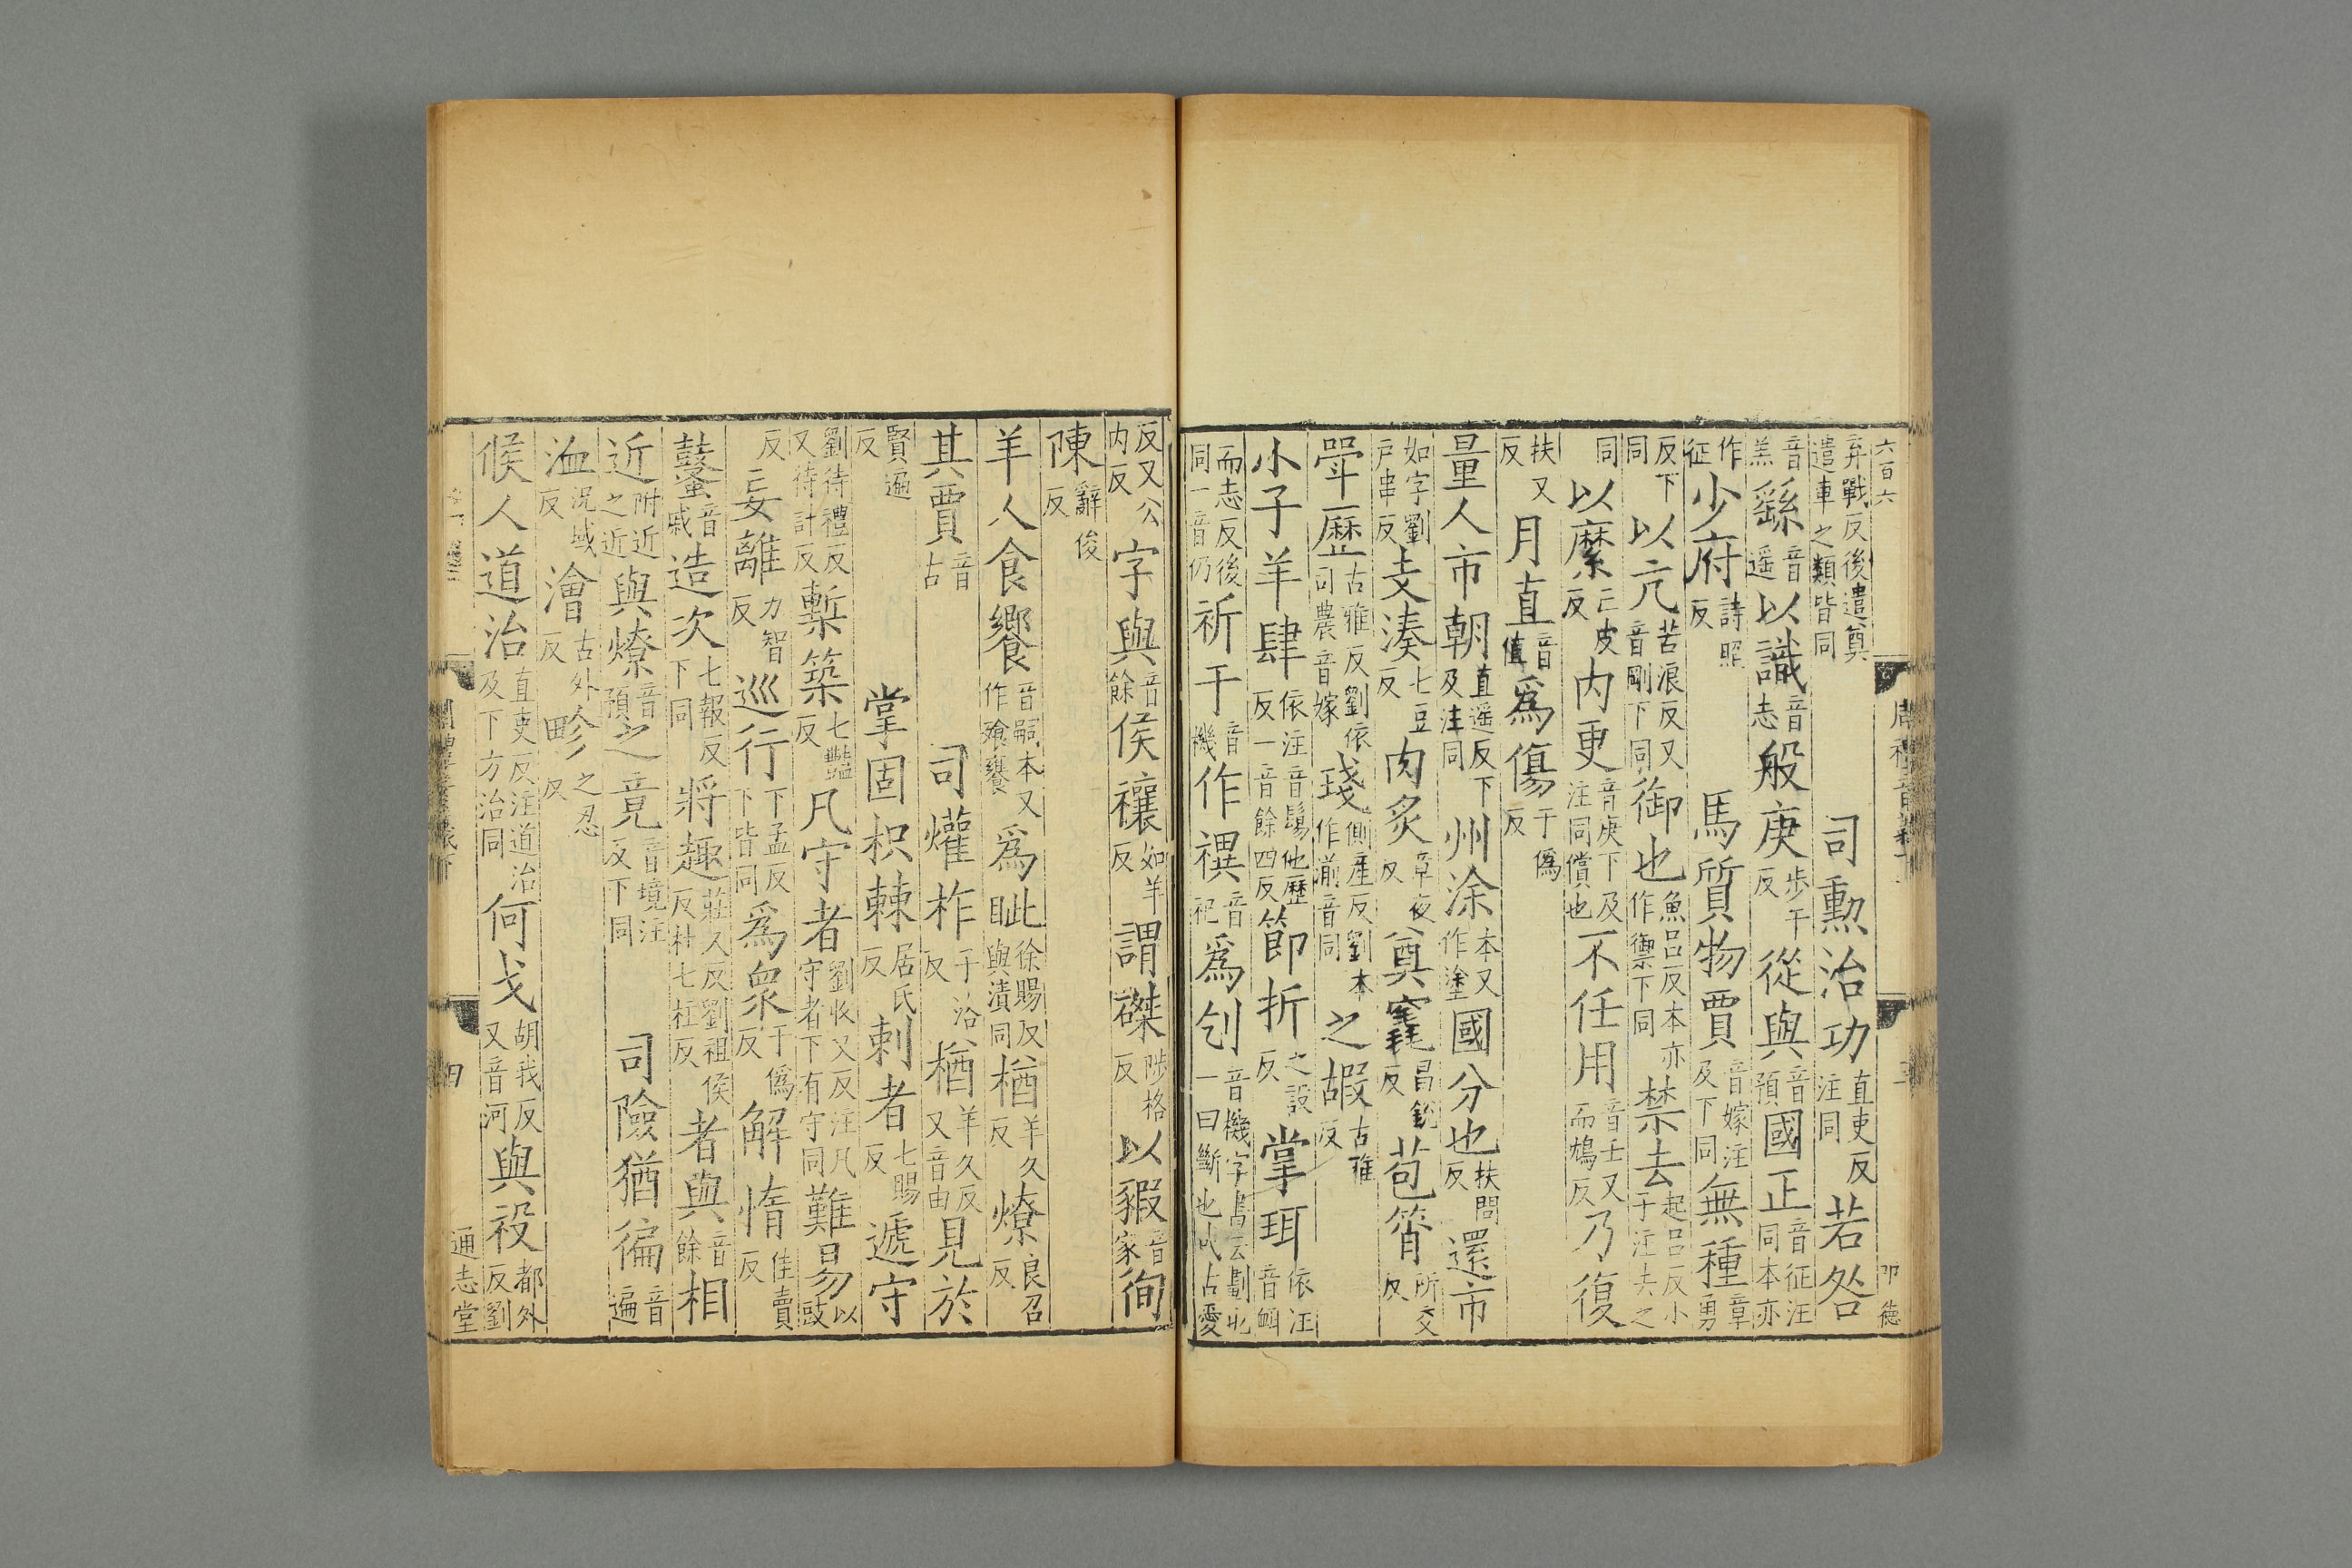 六百六
弃戰反後遣奠遣車之類皆同 司勲治功直吏反注同若咎
音羔繇音遥以識音志般庚步干反從與音預國正音征注同本亦
作征少府詩照反 馬質物賈音嫁注及下同無種章勇
反下同以亢苦浪反又音剛下同御也魚呂反本亦作禦下同禁去起呂反小于注去之
同以縻亡皮反内更音庚下及注同償也不任用音壬又而鴆反乃復
扶又反月直音值爲傷于僞反
量人市朝直遥反下及注同州涂本又作塗國分也扶問反還市
如字劉户串反支湊七豆反肉炙章夜反奠竁昌銳反苞筲所交反
斝歷古雅反劉依司農音嫁琖側産反劉本作湔音同之嘏古雅反
小子羊肆依注音鬄他歷反一音餘四反節折之設反掌珥依注音衈
而志反後同一音仍祈于音機作禩音祀爲刉音機字書云劃也一曰斷也
反又公内反字與音餘侯禳如羊反謂磔陟格反以豭音家徇
陳辭俊反
羊人食饔音嗣本又作飧饔爲眦徐賜反與漬同槱羊久反燎良召反
其賈音古 司爟柞于洛反槱羊久反又音由見於
賢遍反 掌固枳棘居氏反刺者七賜反遞守
劉待禮反又待計反塹築七豔反凡守者劉收又反注凡守者下有守同難易以豉
反妄離力智反巡行下孟反下皆同爲衆于僞反解惰佳賣反
鼜音戚造次七報反下同將趣莊久反劉祖侯反杜七枉反者與音餘相
近附近之近與燎音預之竟音境注反下同 司險猶徧音遍
洫況域反澮古外反畛之忍反
候人道治直吏反注道治及下方治同何戈胡我反又音河與祋都外反劉
四
通志堂